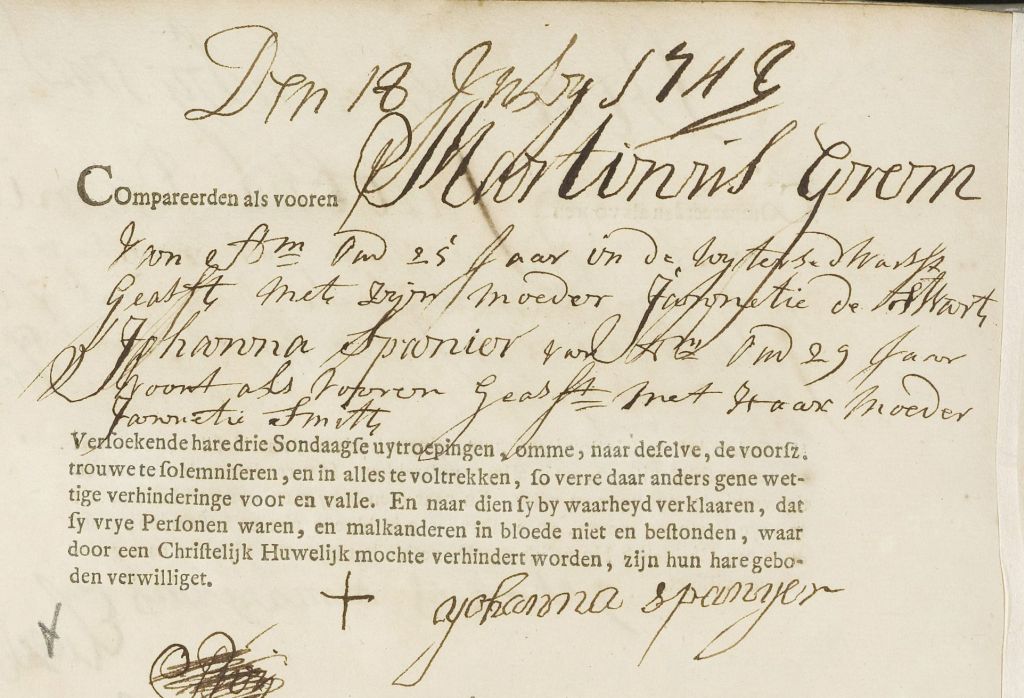 Den 18 July 174
COmpareerden als vooren Martinus Grem
Van Adm Oud 25 Jaar in de
Geasst. Met zijn Moeder Jannetie de Wart
Johanna Spanier van Adm Oud 29 Jaar
Woont als vooren Geasst. Met Haar Moeder
Jannetie Smitt
Verſoekende hare drie Sondaagſe uytroepingen, omme, naar deſelve, de voorſz.
trouwe te ſolemniſeren, en in alles te voltrekken, ſo verre daar anders gene wet-
tige verhinderinge voor en valle. En naar dien ſy by waarheyd verklaaren, dat
ſy vrye Perſonen waren, en malkanderen in bloede niet en beſtonden, waar
door een Chriſtelijk Huwelijk mochte verhindert worden, zijn hun hare gebo-
den verwilliget.
+ yohanna spanyer